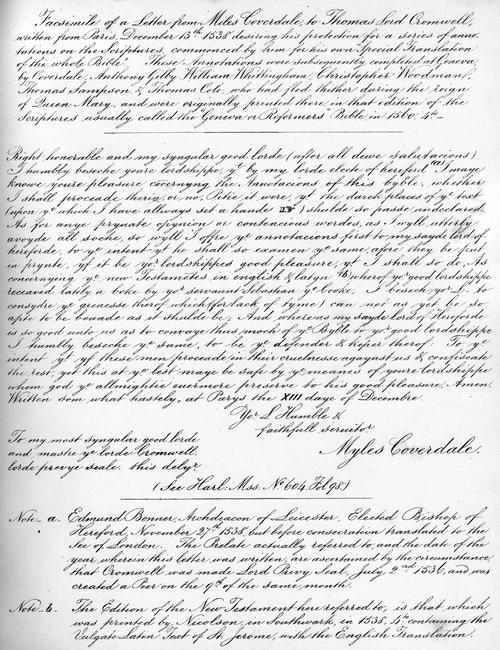 Facsimile of a Letter from Miles Coverdale, to Thomas Lord Cromwell,
written from Paris, December 13th 1538 desiring his protection for a series of anno-
tations on the Scriptures, commenced by him for his own "Special Translation
of the whole Bible". These Annotations were subsequently completed at Geneva,
by Coverdale, Anthony Gilby, William Whittingham, Christopher Woodman,
Thomas Sampson & Thomas Cole, who had fled thither during the reign
of Queen Mary, and were originally printed there, in that edition of the
Scriptures usually called the "Geneva or Reformers" Bible in 1560. 4to
Right honorable and my syngular good lorde (after all dewe salutacions)
I humbly beseche youre lordshippe, yt by my lorde electe of hereford (a) I maye
knowe youre pleasure, cōcernyng the Annotacions of this byble, whether
I shall proceade therin, or no, Pitie it were, yt the darck places of ye text
(upon ye which I have allwaye set a hande ☞) shulde so passe undeclared.
As for anye pryuate opynion or contencious wordes, as I wyll utterly
avoyde all soche, so wyll I offre ye annotacions first to my sayde lord of
hereforde, to ye intent yt he shall so examen ye same, afore they be put
in prynte, yf it be yor lordshippes good pleasure, yt I shall so do. As
concernynge ye new Testamētes in english & latyn (b) wherof yor good lordshippe
receaved lately a boke by yor servaunt Sebastian ye Cooke, I besech yor L. to
consydre ye grenesse therof which (for lack of tyme) can not as yet be so
apte to be bounde as it shulde be; And whereas my sayde lord of Hereforde
is so good unto us as to convaye thus moch of ye Byble to yor good lordshippe
I humbly beseche ye same, to be ye defender & keper therof. To ye
intent yt yf these men proceade in their cruelnesse agaynst us & confiscate
the rest, yet this at ye lest maye be safe by ye meanes of youre lordshippe
whom god ye allmightie euermore preserve to his good pleasure. Amen.
Written som what hastely, at Parys the XIII daye of Decembre.
Yor L Humble &
faithfull seruitor
Myles Coverdale.
To my most syngular good lorde
and mastre ye lorde Cromwell,
lorde prevye seale. this delyr
(See Harl: Mss. No 604. Fol 98)
Note a. Edmund Bonner, Archdeacon of Leicester, Elected Bishop of
Hereford, November 27th 1538, but before consecration translated to the
See of London. The Prelate actually referred to, and the date of the
year wherein this letter was written, are ascertained by the circumstance
that Cromwell was made Lord Privy Seal, July 2nd 1536, and was
created a Peer on the 9th of the same month.
Note b. The Edition of the New Testament here referred to, is that which
was printed by Nicolson, in Southwark, in 1538, 4to containing the
Vulgate Latin Text of St Jerome, with the English Translation.